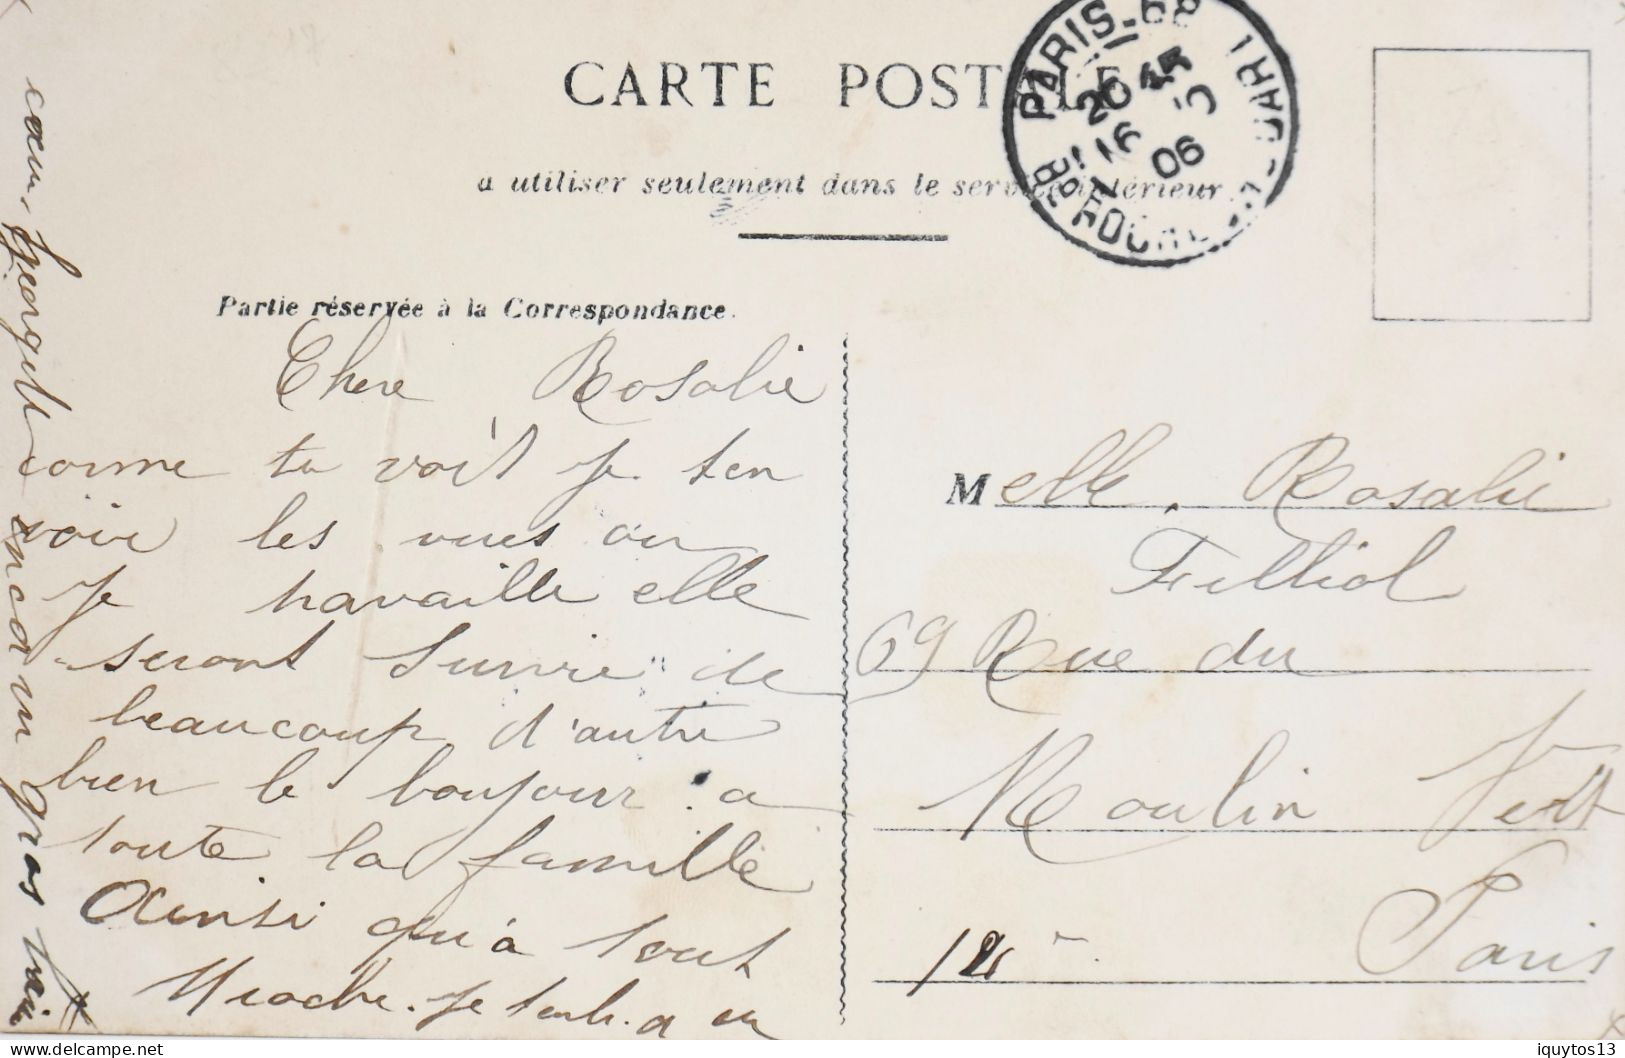 CARTE POSTALE
a utiliser seulement dans le service intérieur
PARIS-68
20 45
16
06
Partie réservée à la Correspondance.
Chere Rosalie
comme tu voit je ten
voir les vues ou
je travaille elle
seront suivie de
beaucoup d'autre
bien le boujour a
toute la famille
Ainsi qu'à tout
je
cœur. Georgette
encor un gros
Melle. Rosalie
Filliol
69 Rue du
Moulin Vert
Paris
iquytos13